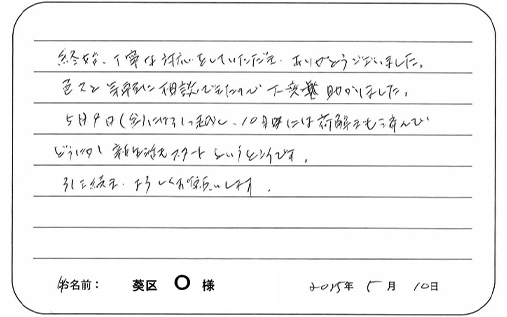 終始、丁寧な対応をしていただき、ありがとうございました。
色々と気軽に相談できたので大変助かりました。
5月9日(金)に引っ越し、10日には荷解きも済んで
どうにか新生活スタートというところです。
引き続き、よろしくお願いします。
お名前: 葵区 〇 様 2015年 5月 10日